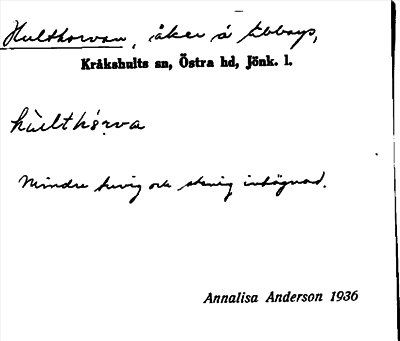 Hulthorvan, åker å Ebbarps,
Kråkshults sn, Östra hd, Jönk. l.
hùlthórva
Mindre kuvig och stenig inhägnad.
Annalisa Anderson 1936